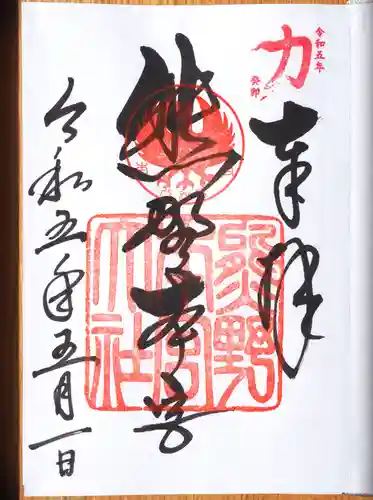 令和五年
癸卯
力
奉拝
熊野本宮
熊野本宮大社
令和五年五月一日